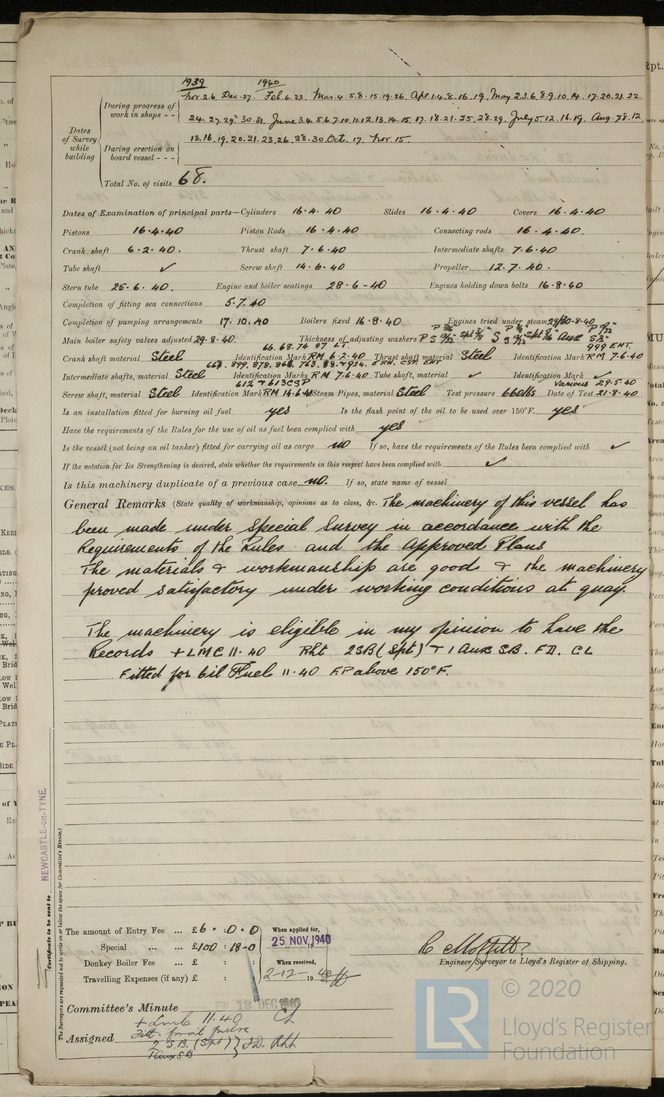 1939 1940
Nov. 26. Dec. 27. Feb. 6. 23. Mar. 4. 5. 8. 15. 19. 26. Apl. 1. 4. 8. 16. 19. May 2. 3. 6. 8. 9. 10. 14. 17. 20. 21. 22
Dates of Survey while building
During progress of work in shops - -
24. 27. 29. 30. 31. June 3. 4. 5. 6. 7. 10. 11. 12. 13. 14. 15. 17. 18. 21. 25. 28. 29. July 5. 12. 16. 19. Aug. 7. 8. 12
During erection on board vessel - - -
13. 16. 19. 20. 21. 23. 26. 28. 30 Oct. 17. Nov. 15.
Total No. of visits 68.
Dates of Examination of principal parts—Cylinders 16.4.40 Slides 16.4.40 Covers 16.4.40
Pistons 16.4.40 Piston Rods 16.4.40 Connecting rods 16.4.40.
Crank shaft 6.2.40. Thrust shaft 7.6.40 Intermediate shafts 7.6.40
Tube shaft ✓ Screw shaft 14.6.40 Propeller 12.7.40.
Stern tube 25.6.40. Engine and boiler seatings 28-6-40 Engines holding down bolts 16.8.40
Completion of fitting sea connections 5.7.40
Completion of pumping arrangements 17.10.40 Boilers fixed 16.8.40 Engines tried under steam
Main boiler safety valves adjusted 29.8.40. Thickness of adjusting washers
Crank shaft material Steel Identification Mark RM 6.2.40 Thrust shaft material Steel Identification Mark RM 7.6.40
Intermediate shafts, material Steel Identification Marks RM 7.6.40 Tube shaft, material ✓ Identification Mark ✓
Screw shaft, material Steel Identification Mark RM 14.6.40 Steam Pipes, material Steel Test pressure 660 lbs Date of Test Various 29.5.40 21.8.40
Is an installation fitted for burning oil fuel yes Is the flash point of the oil to be used over 150°F. yes
Have the requirements of the Rules for the use of oil as fuel been complied with yes
Is the vessel (not being an oil tanker) fitted for carrying oil as cargo no If so, have the requirements of the Rules been complied with ✓
If the notation for Ice Strengthening is desired, state whether the requirements in this respect have been complied with ✓
Is this machinery duplicate of a previous case no. If so, state name of vessel
General Remarks (State quality of workmanship, opinions as to class, &c. The machinery of this vessel has
been made under Special Survey in accordance with the
Requirements of the Rules and the Approved Plans
The materials & workmanship are good & the machinery
proved satisfactory under working conditions at quay.
The machinery is eligible in my opinion to have the
Records + LMC 11.40 Rht 2SB (Spt) + 1 Aux S.B. F.D. CL
Fitted for Oil Fuel 11.40 F.P. above 150°F.
NEWCASTLE-on-TYNE
Certificate to be sent to
(The Surveyors are requested not to write on or below the space for Committee's Minute.)
The amount of Entry Fee ... £ 6 : 0 : 0 When applied for,
Special ... £ 100 : 18 - 0 25 NOV 1940
Donkey Boiler Fee ... £ : : When received,
Travelling Expenses (if any) £ : : 2-12-1940
R. Moffett
Engineer Surveyor to Lloyd's Register of Shipping.
Committee's Minute FRI 13 DEC 1940
+ Lmc 11.40 CL
Assigned
2 S.B. (Spt) } F.D. Rht
© 2020
LR
Lloyd's Register
Foundation